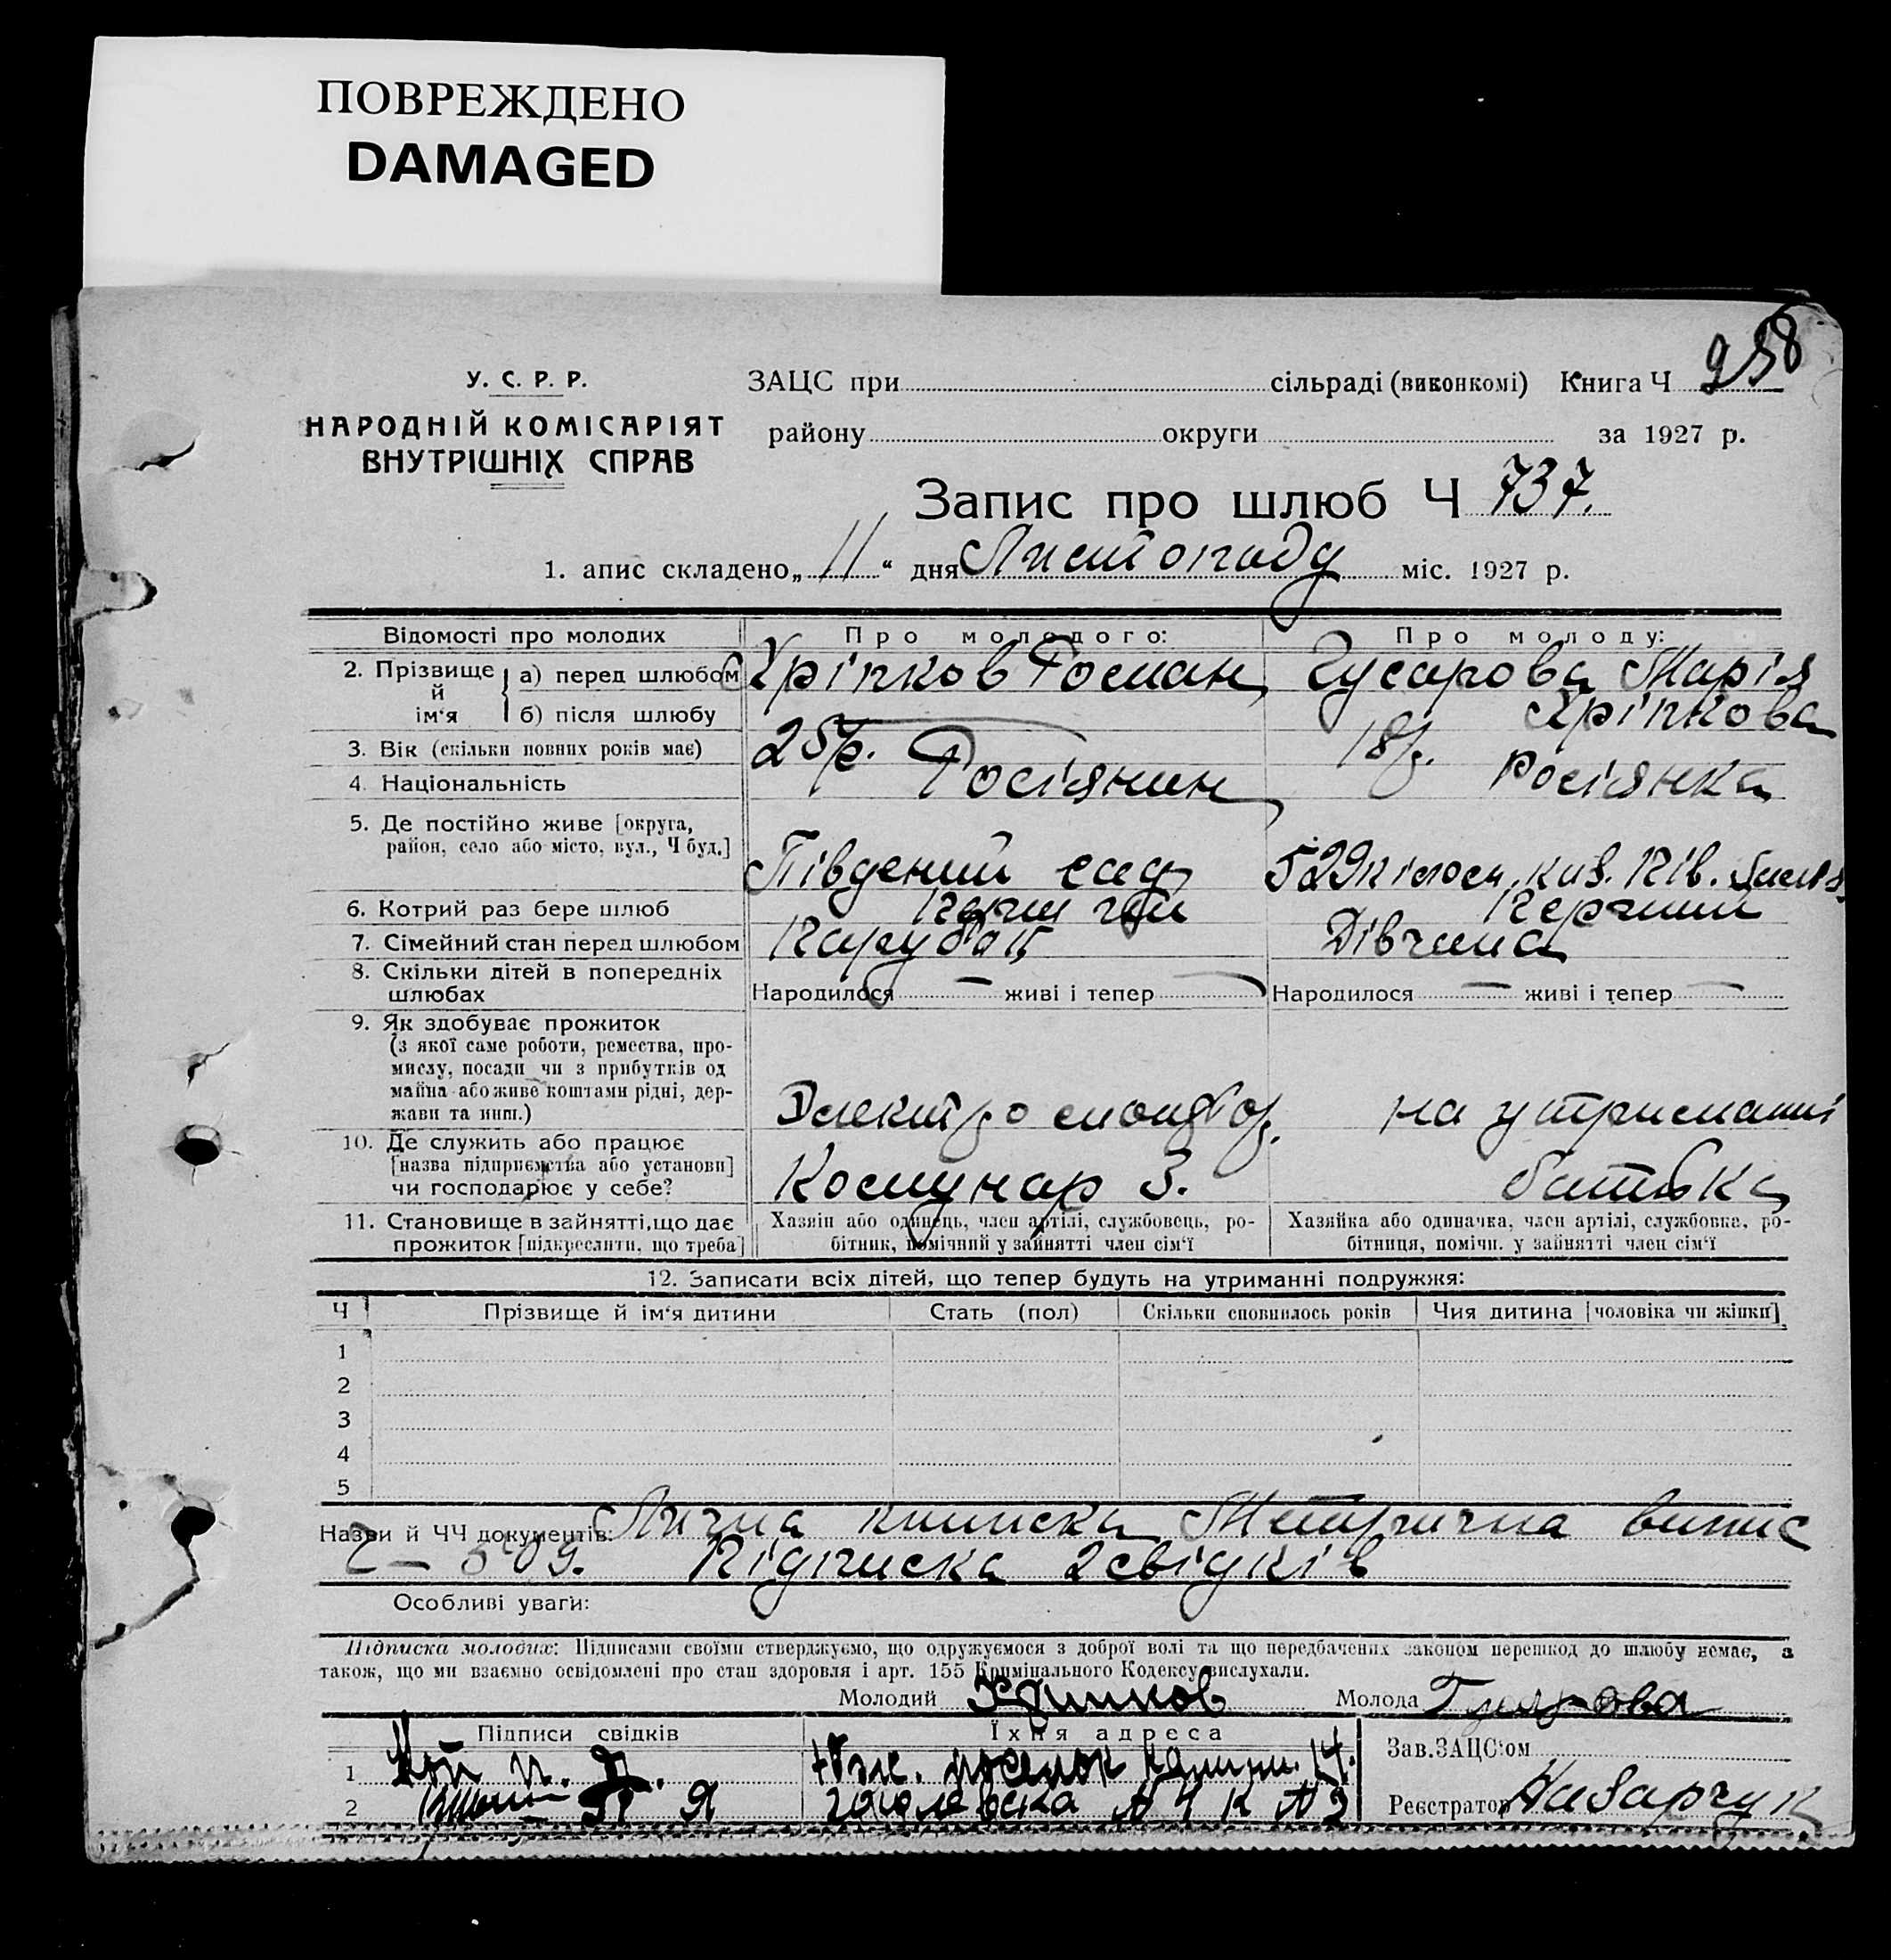 ПОВРЕЖДЕНО
DAMAGED
258
У. С. Р. Р.
НАРОДНІЙ КОМІСАРІЯТ
ВНУТРІШНІХ СПРАВ
ЗАЦС при сільраді (виконкомі) Книга Ч
району округи за 1927 р.
Запис про шлюб Ч 737.
1. апис складено „11“ дня Листопаду міс. 1927 р.
Відомості про молодих
Про молодого:
Про молоду:
2. Прізвище й ім‘я
а) перед шлюбом
Хріпков Роман
Гусарова Марія
б) після шлюбу
Хріпкова
3. Вік (скільки повних років має)
25 р.
18 р.
4. Національність
Росіянин
росіянка
5. Де постійно живе [округа,
район, село або місто, вул., Ч буд.]
Південий сад
529 кілом. Пів.
6. Котрий раз бере шлюб
Перший
7. Сімейний стан перед шлюбом
Парубок
Дівчина
8. Скільки дітей в попередніх
шлюбах
Народилося — живі і тепер —
Народилося — живі і тепер —
9. Як здобуває прожиток
(з якої саме роботи, ремества, про-
мислу, посади чи з прибутків од
майна або живе коштами рідні, дер-
жави та инш.)
на утриманні
батька
10. Де служить або працює
[назва підприємства або установи]
чи господарює у себе?
Комунар З.
11. Становище в зайнятті, що дає
прожиток [підкреслити, що треба]
Хазяїн або одинець, член артілі, службовець, ро-
бітник, помічний у зайнятті член сім‘ї
Хазяйка або одиначка, член артілі, службовка, ро-
бітниця, помічн. у зайнятті член сім‘ї
12. Записати всіх дітей, що тепер будуть на утриманні подружжя:
Ч Прізвище й ім‘я дитини Стать (пол) Скільки сповнилось років Чия дитина [чоловіка чи жінки]
1
2
3
4
5
Назви й ЧЧ документів: Лична книжка Метрична випис
509. Підписка 2 свідків
Особливі уваги:
Підписка молодих: Підписами своїми стверджуємо, що одружуємося з доброї волі та що передбачених законом перешкод до шлюбу немає, а
також, що ми взаємно освідомлені про стан здоровля і арт. 155 Кримінального Кодексу вислухали.
Молодий Хрипков Молода Гусарова
Підписи свідків
Їхня адреса
1
Юж. поселок 14.
2
Я
гоголевска № 4 к № 2
Зав. ЗАЦС‘ом
Реєстратор Назарчук